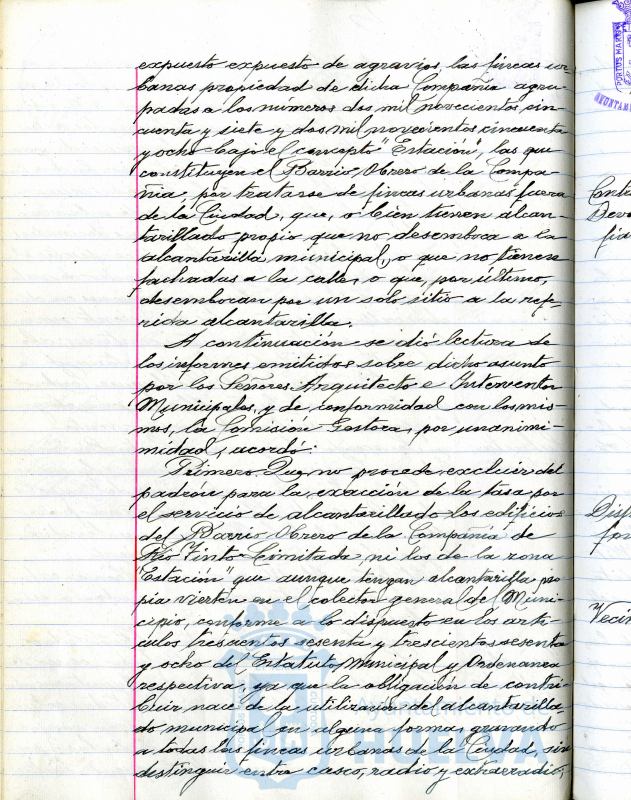 expuesto expuesto de agravios, las fincas ur-
banas propiedad de dicha Compañia agru-
padas a los números dos mil novecientos cin-
cuenta y siete y dos mil novecientos cincuenta
y ocho bajo el concepto "Estación", las que
constituyen el Barrio Obrero de la Compa-
ñia, por tratarse de fincas urbanas fuera
de la Ciudad, que, o bien tienen alcan-
tarillado propio que no desemboca a la
alcantarilla municipal, o que no tienen
fachadas a la calle, o que, por último,
desembocan por un solo sitio a la refe-
rida alcantarilla.
A continuación se dió lectura de
los informes emitidos sobre dicho asunto
por los Señores Arquitecto e Interventor
Municipales, y de conformidad con los mis-
mos, la Comisión Gestora, por unanimi-
midad, acordó:
Primero. Que no procede excluir del
padrón para la exacción de la tasa por
el servicio de alcantarillado los edificios
del Barrio Obrero de la Compañia de
Rio Tinto Limitada, ni los de la zona
"Estación" que aunque tengan alcantarilla pro
pia vierten en el colector general del Muni-
cipio, conforme a lo dispuesto en los artí-
culos trescientos sesenta y trescientos sesenta
y ocho del Estatuto Municipal y Ordenanza
respectiva, ya que la obligación de contri-
buir nace de la utilización del alcantarilla-
do municipal en alguna forma, gravando
a todas las fincas urbanas de la Ciudad, sin
distinguir entre casco, radio y extraradio,
Ayuntamiento de
HUELVA
PORTUS MARIS
AYUNTAM
Devo
Vecin